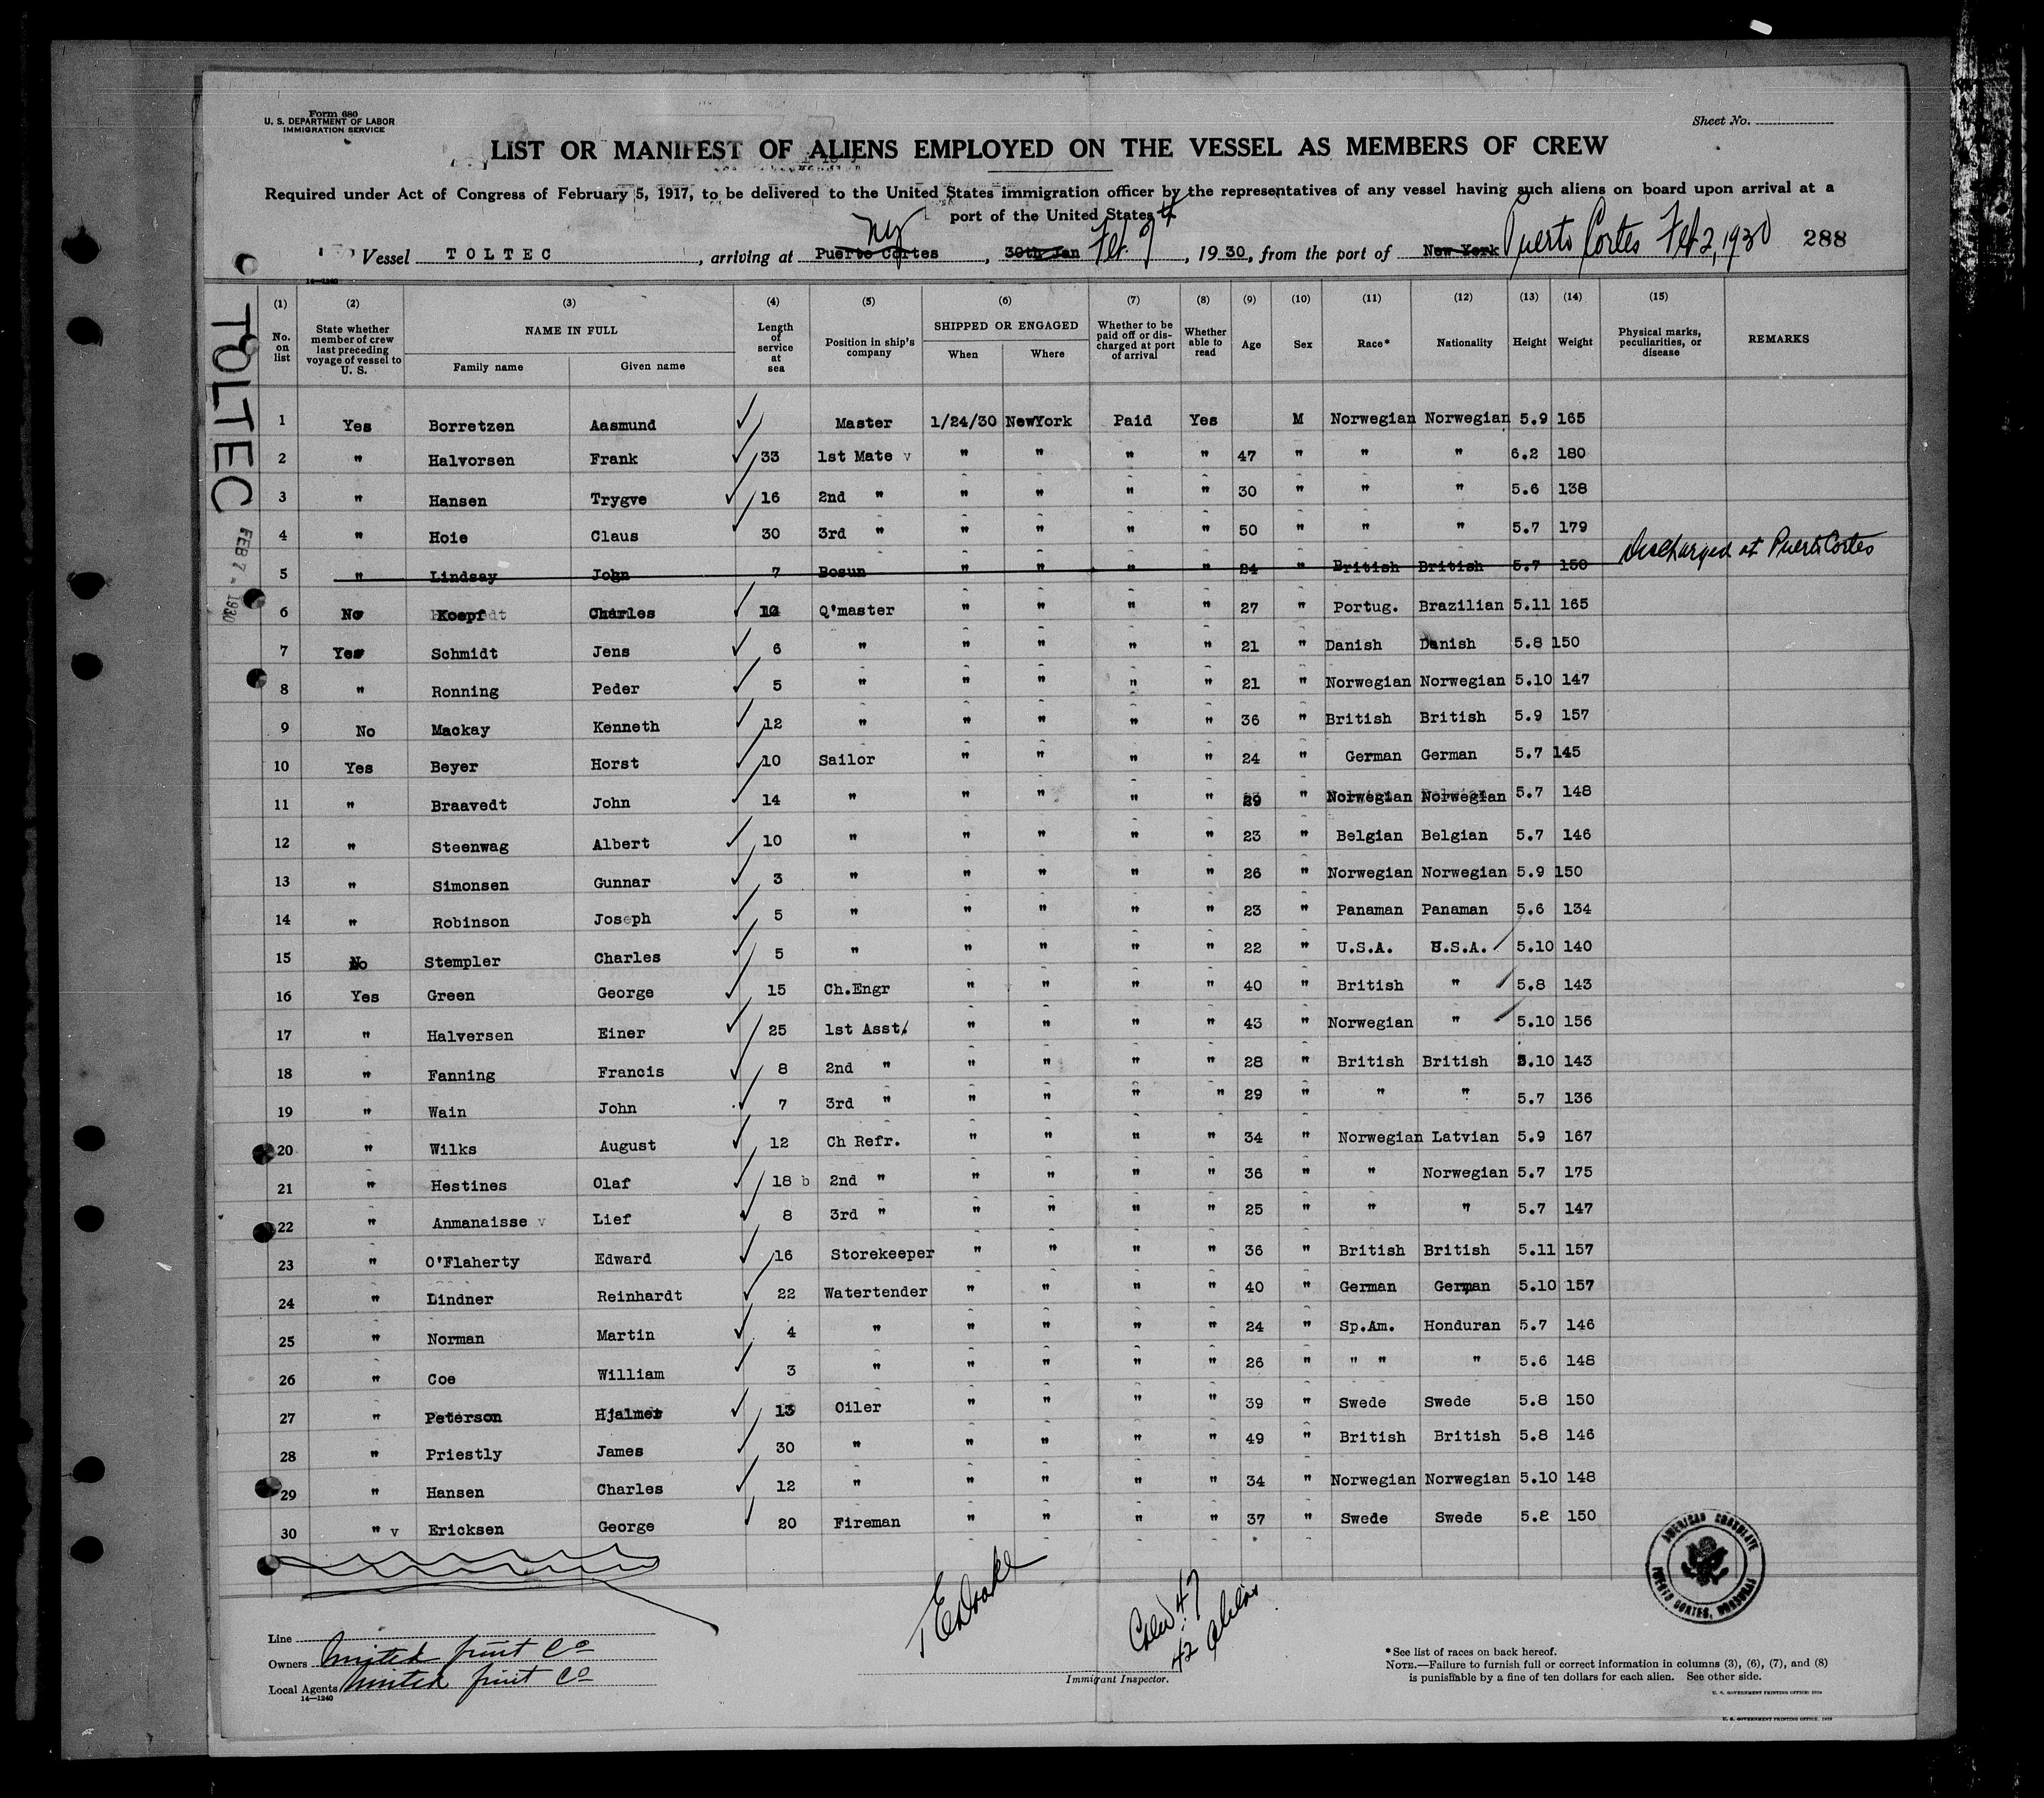 Form 680
U. S. DEPARTMENT OF LABOR
IMMIGRATION SERVICE
Sheet No.
LIST OR MANIFEST OF ALIENS EMPLOYED ON THE VESSEL AS MEMBERS OF CREW
Required under Act of Congress of February 5, 1917, to be delivered to the United States immigration officer by the representatives of any vessel having such aliens on board upon arrival at a
port of the United States
Vessel TOLTEC, arriving at Puerto Cortes NY, 30th Jan Feb. 7, 1930, from the port of New York Puerto Cortes Feb 2, 1930 288
14—1240
TOLTEC
FEB 7 - 1930
(1) (2) (3) (4) (5) (6) (7) (8) (9) (10) (11) (12) (13) (14) (15)
No. on list State whether member of crew last preceding voyage of vessel to U. S. NAME IN FULL Family name Given name Length of service at sea Position in ship's company SHIPPED OR ENGAGED When Where Whether to be paid off or discharged at port of arrival Whether able to read Age Sex Race* Nationality Height Weight Physical marks, peculiarities, or disease REMARKS
1 Yes Borretzen Aasmund Master 1/24/30 NewYork Paid Yes M Norwegian Norwegian 5.9 165
2 " Halvorsen Frank 33 1st Mate v " " " " 47 " " " 6.2 180
3 " Hansen Trygve 16 2nd " " " " " 30 " " " 5.6 138
4 " Hoie Claus 30 3rd " " " " " 50 " " " 5.7 179
5 " Lindsay John 7 Bosun " " " " 24 " British British 5.7 150 Discharged at Puerto Cortes
6 No Koepf Charles Q'master " " " " 27 " Portug. Brazilian 5.11 165
7 Yes Schmidt Jens 6 " " " " " 21 " Danish Danish 5.8 150
8 " Ronning Peder 5 " " " " " 21 " Norwegian Norwegian 5.10 147
9 No Mackay Kenneth 12 " " " " " 36 " British British 5.9 157
10 Yes Beyer Horst 10 Sailor " " " " 24 " German German 5.7 145
11 " Braavedt John 14 " " " " " 29 " Norwegian Norwegian 5.7 148
12 " Steenwag Albert 10 " " " " " 23 " Belgian Belgian 5.7 146
13 " Simonsen Gunnar 3 " " " " " 26 " Norwegian Norwegian 5.9 150
14 " Robinson Joseph 5 " " " " " 23 " Panaman Panaman 5.6 134
15 No Stempler Charles 5 " " " " " 22 " U.S.A. U.S.A. 5.10 140
16 Yes Green George 15 Ch.Engr " " " " 40 " British " 5.8 143
17 " Halversen Einer 25 1st Asst. " " " " 43 " Norwegian " 5.10 156
18 " Fanning Francis 8 2nd " " " " " 28 " British British 5.10 143
19 " Wain John 7 3rd " " " " " 29 " " " 5.7 136
20 " Wilks August 12 Ch Refr. " " " " 34 " Norwegian Latvian 5.9 167
21 " Hestines Olaf 18 b 2nd " " " " " 36 " " Norwegian 5.7 175
22 " Anmanaisse v Lief 8 3rd " " " " " 25 " " " 5.7 147
23 " O'Flaherty Edward 16 Storekeeper " " " " 36 " British British 5.11 157
24 " Lindner Reinhardt 22 Watertender " " " " 40 " German German 5.10 157
25 " Norman Martin 4 " " " " " 24 " Sp.Am. Honduran 5.7 146
26 " Coe William 3 " " " " " 26 " " " " 5.6 148
27 " Peterson Hjalmer 13 Oiler " " " " 39 " Swede Swede 5.8 150
28 " Priestly James 30 " " " " " 49 " British British 5.8 146
29 " Hansen Charles 12 " " " " " 34 " Norwegian Norwegian 5.10 148
30 " v Ericksen George 20 Fireman " " " " 37 " Swede Swede 5.8 150
AMERICAN CONSULATE
PUERTO CORTES, HONDURAS
Crew 47
42 aliens
Line
Owners United Fruit Co
Local Agents United Fruit Co
14—1240
Immigrant Inspector.
*See list of races on back hereof.
NOTE.—Failure to furnish full or correct information in columns (3), (6), (7), and (8)
is punishable by a fine of ten dollars for each alien. See other side.
U. S. GOVERNMENT PRINTING OFFICE
U. S. GOVERNMENT PRINTING OFFICE